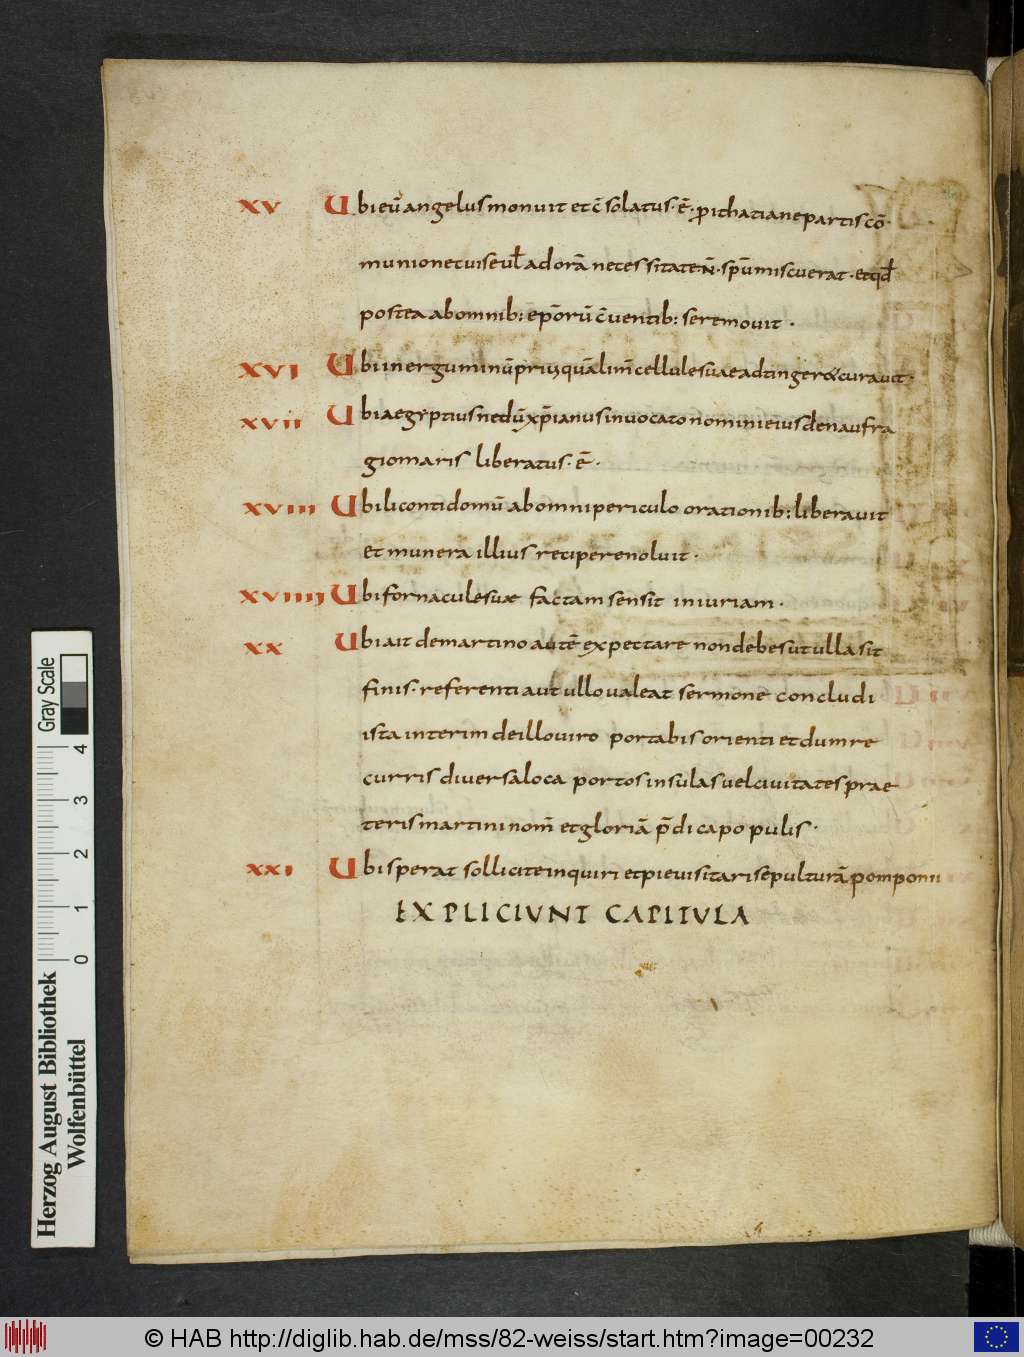 XV Ubi eū angelus monuit et c̄solatus· ē· p ithatiane partis cō
munione cui se ul̄ ad horā necessitate N̄· sp̄u miscuerat· et qđ
postea ab omnib: ep̄orū c̄uentib: se remouit·
XVI Ubi inerguminū priusquā lim̄ cellule suae adtinger& curauit·
XVII Ubi aegyptius nedū xp̄ianus inuocato nomini eius de naufra
gio maris liberatus· ē·
XVIII Ubi liconti domū ab omni periculo orationib: liberauit
et munera illius recipere noluit·
XVIIIJ Ubi fornacule suae factam sensit iniuriam·
XX Ubi ait de martino autē expectare non debes ut ulla sit
finis· referenti aut ullo ualeat sermone concludi
ista interim de illo uiro portabis orienti et dum re
curris diuersa loca portos insulas uel ciuitates prae
teris martini nom̄ et gloriā p̄dica populis·
XXI Ubi sperat sollicite inquiri et pie uisitari sepulturā pomponii
EXPLICIUNT CAPITULA
Herzog August Bibliothek
Wolfenbüttel
Gray Scale
0 1 2 3 4
© HAB http://diglib.hab.de/mss/82-weiss/start.htm?image=00232